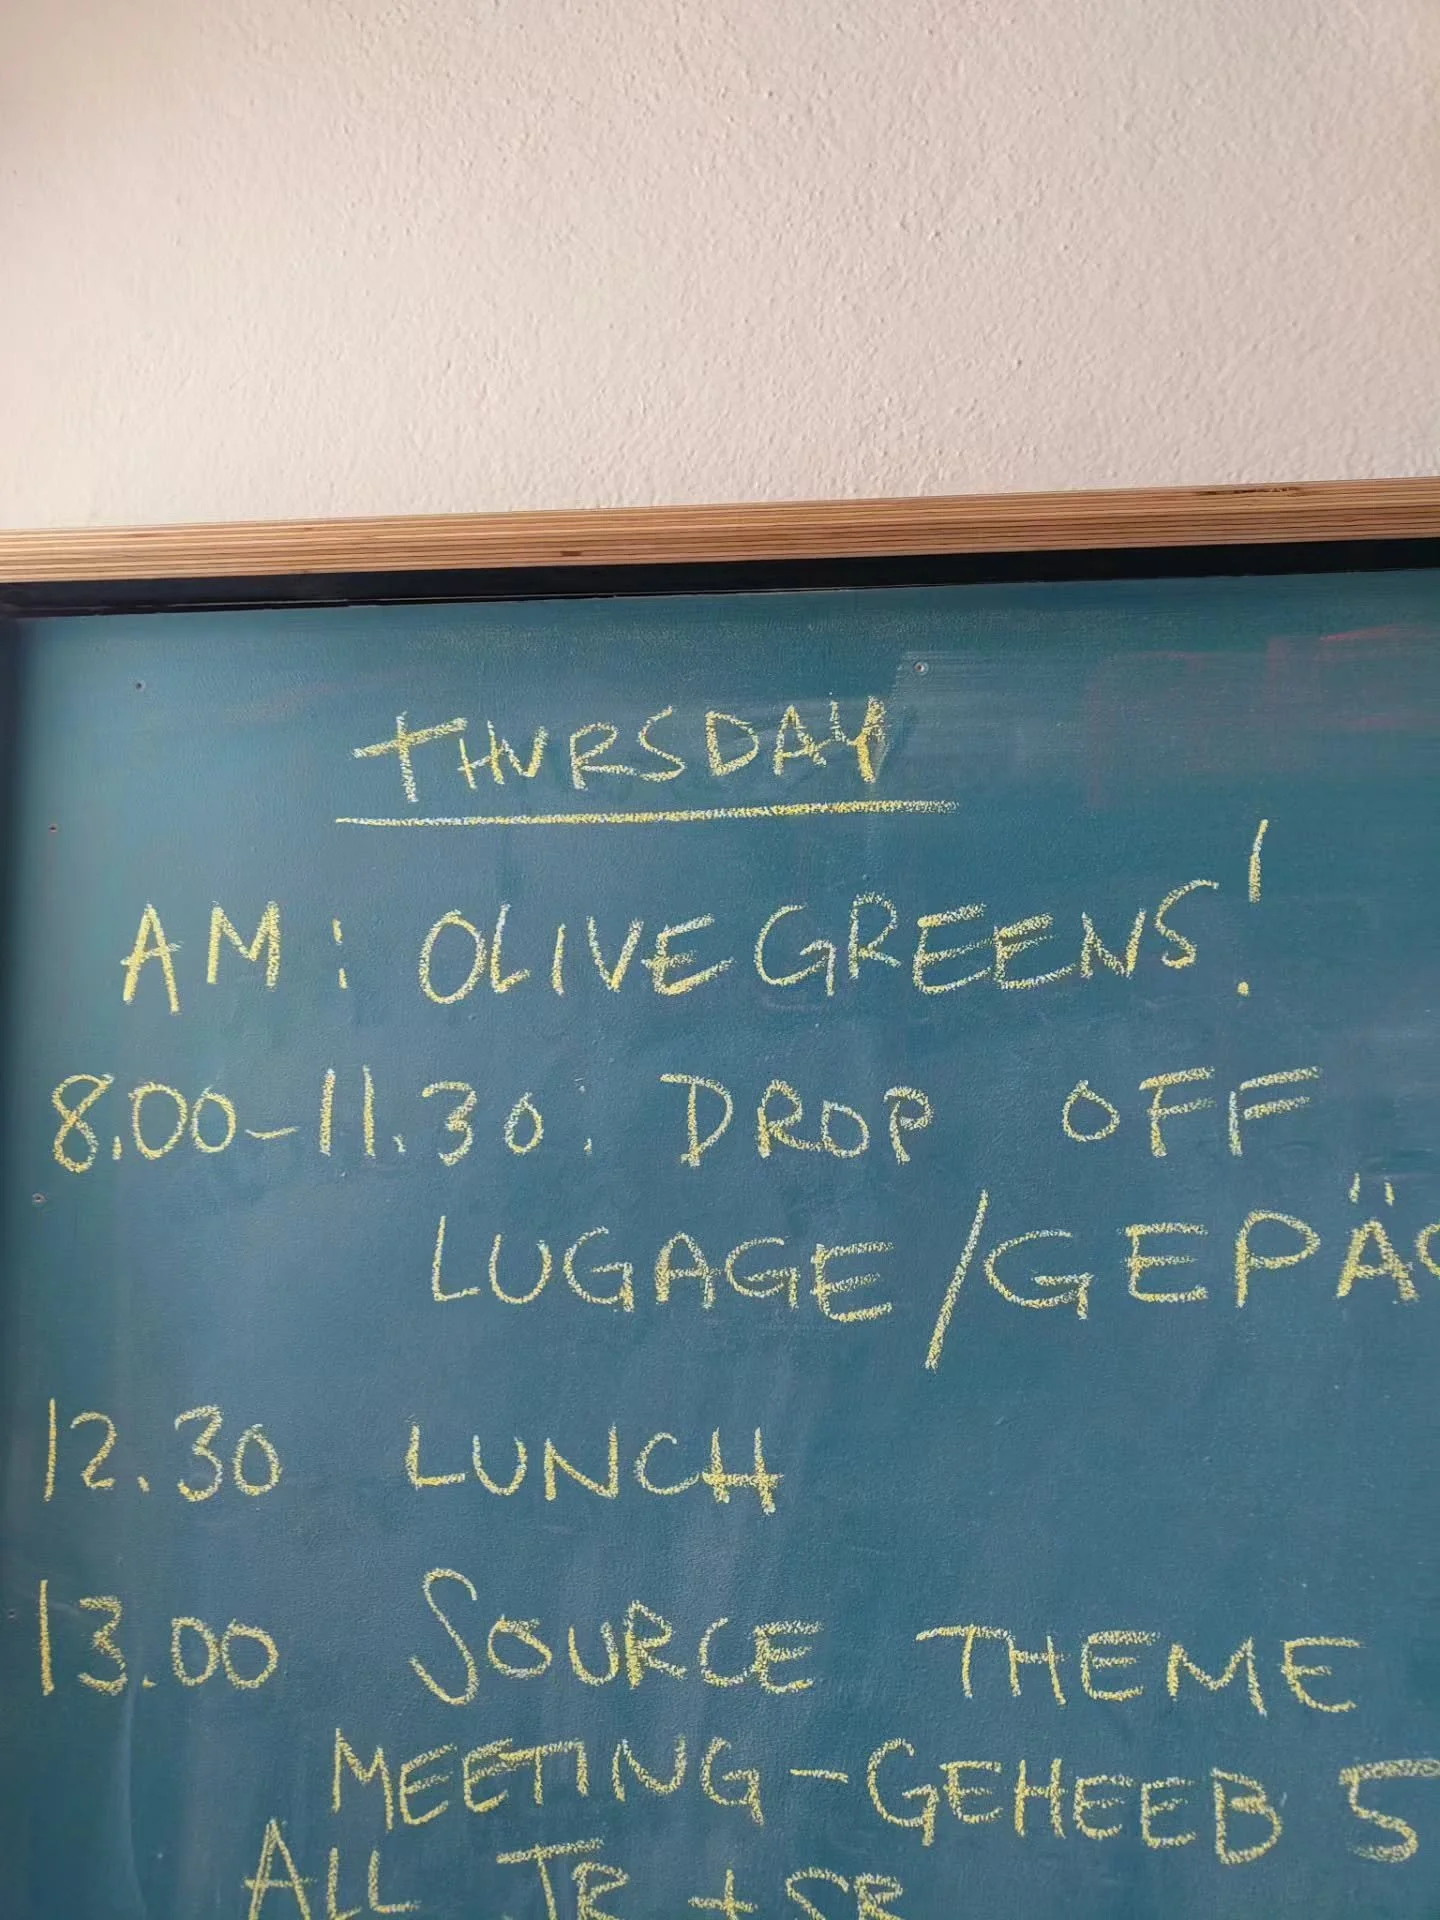 THURSDAY
AM: OLIVE GREENS!
8.00-11.30: DROP OFF
LUGAGE/GEPÄC
12.30 LUNCH
13.00 SOURCE THEME
MEETING - GEHEEB 5
ALL TR + SR